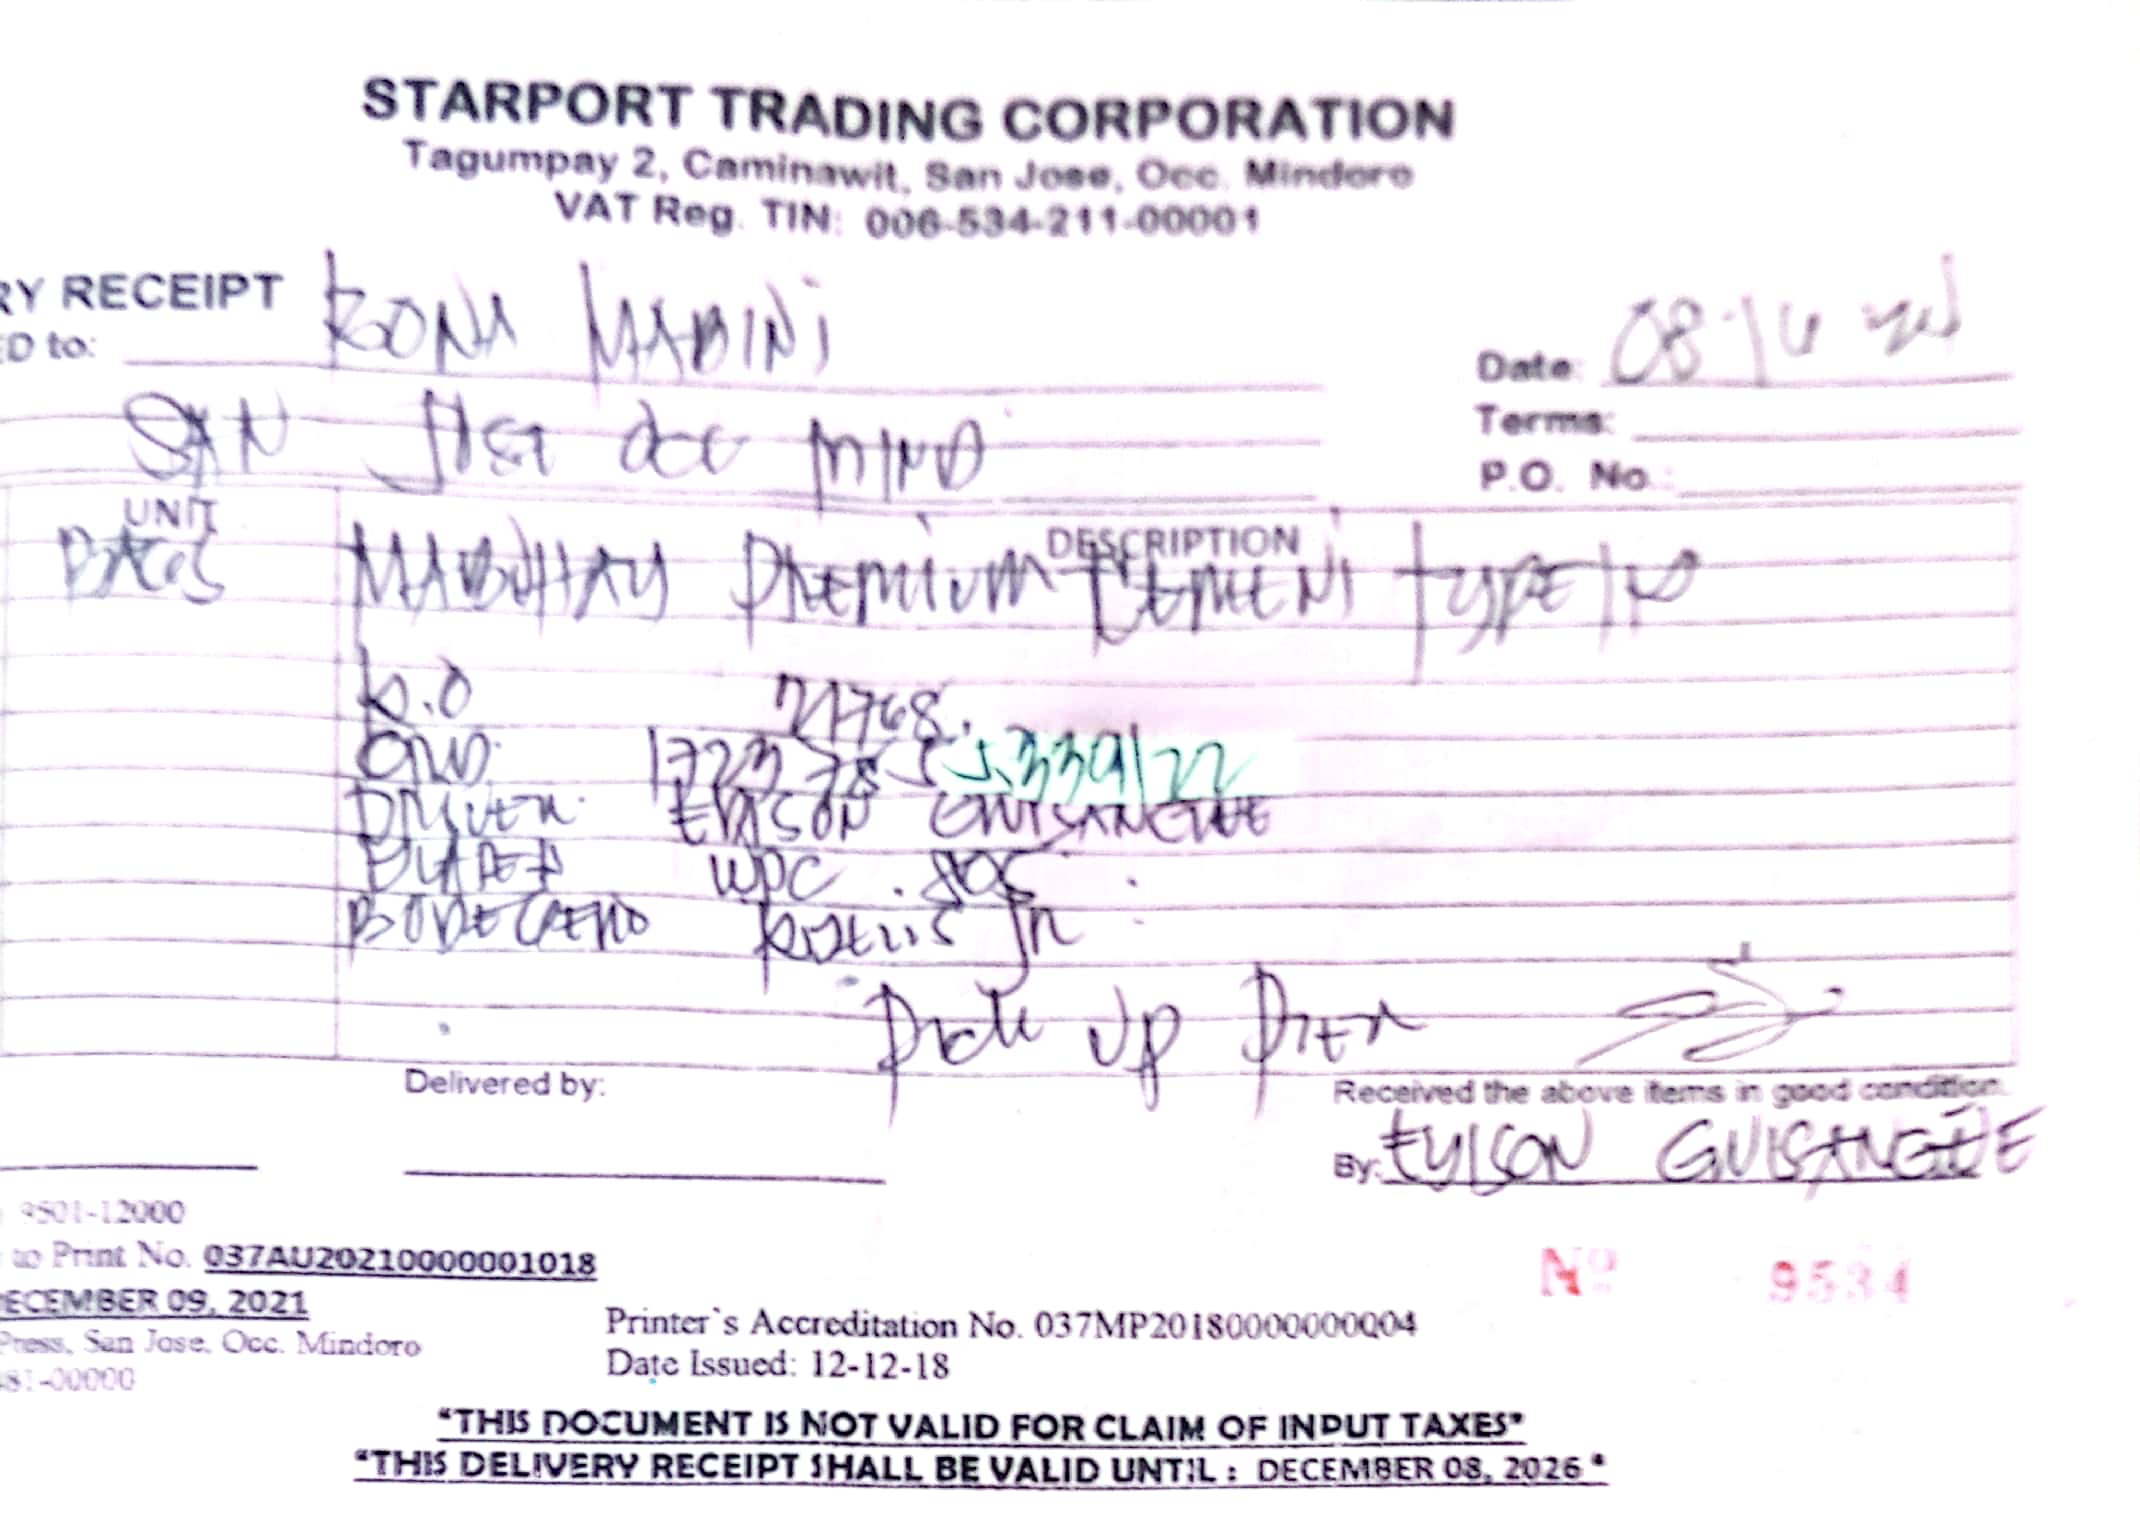 STARPORT TRADING CORPORATION
Tagumpay 2, Caminawit, San Jose, Occ. Mindoro
VAT Reg. TIN: 006-534-211-00001
RY RECEIPT
ED to: BONA MABINI
Date: 08-14
SAN JOSE OCC MIND
Terms:
P.O. No.:
UNIT DESCRIPTION
BAGS MABUHAY PREMIUM CEMENT TYPE 1P
21768.
1723 785 5.339/22
DRIVER GUISANGUE
WPC. 805
BODEGERO JR
Pick UP PIER
Delivered by:
Received the above items in good condition.
By: GUISANGUE
9501-12000
to Print No. 037AU20210000001018
ECEMBER 09, 2021
Press, San Jose, Occ. Mindoro
481-00000
Printer`s Accreditation No. 037MP20180000000004
Date Issued: 12-12-18
Nº 9534
"THIS DOCUMENT IS NOT VALID FOR CLAIM OF INPUT TAXES"
"THIS DELIVERY RECEIPT SHALL BE VALID UNTIL : DECEMBER 08, 2026 "